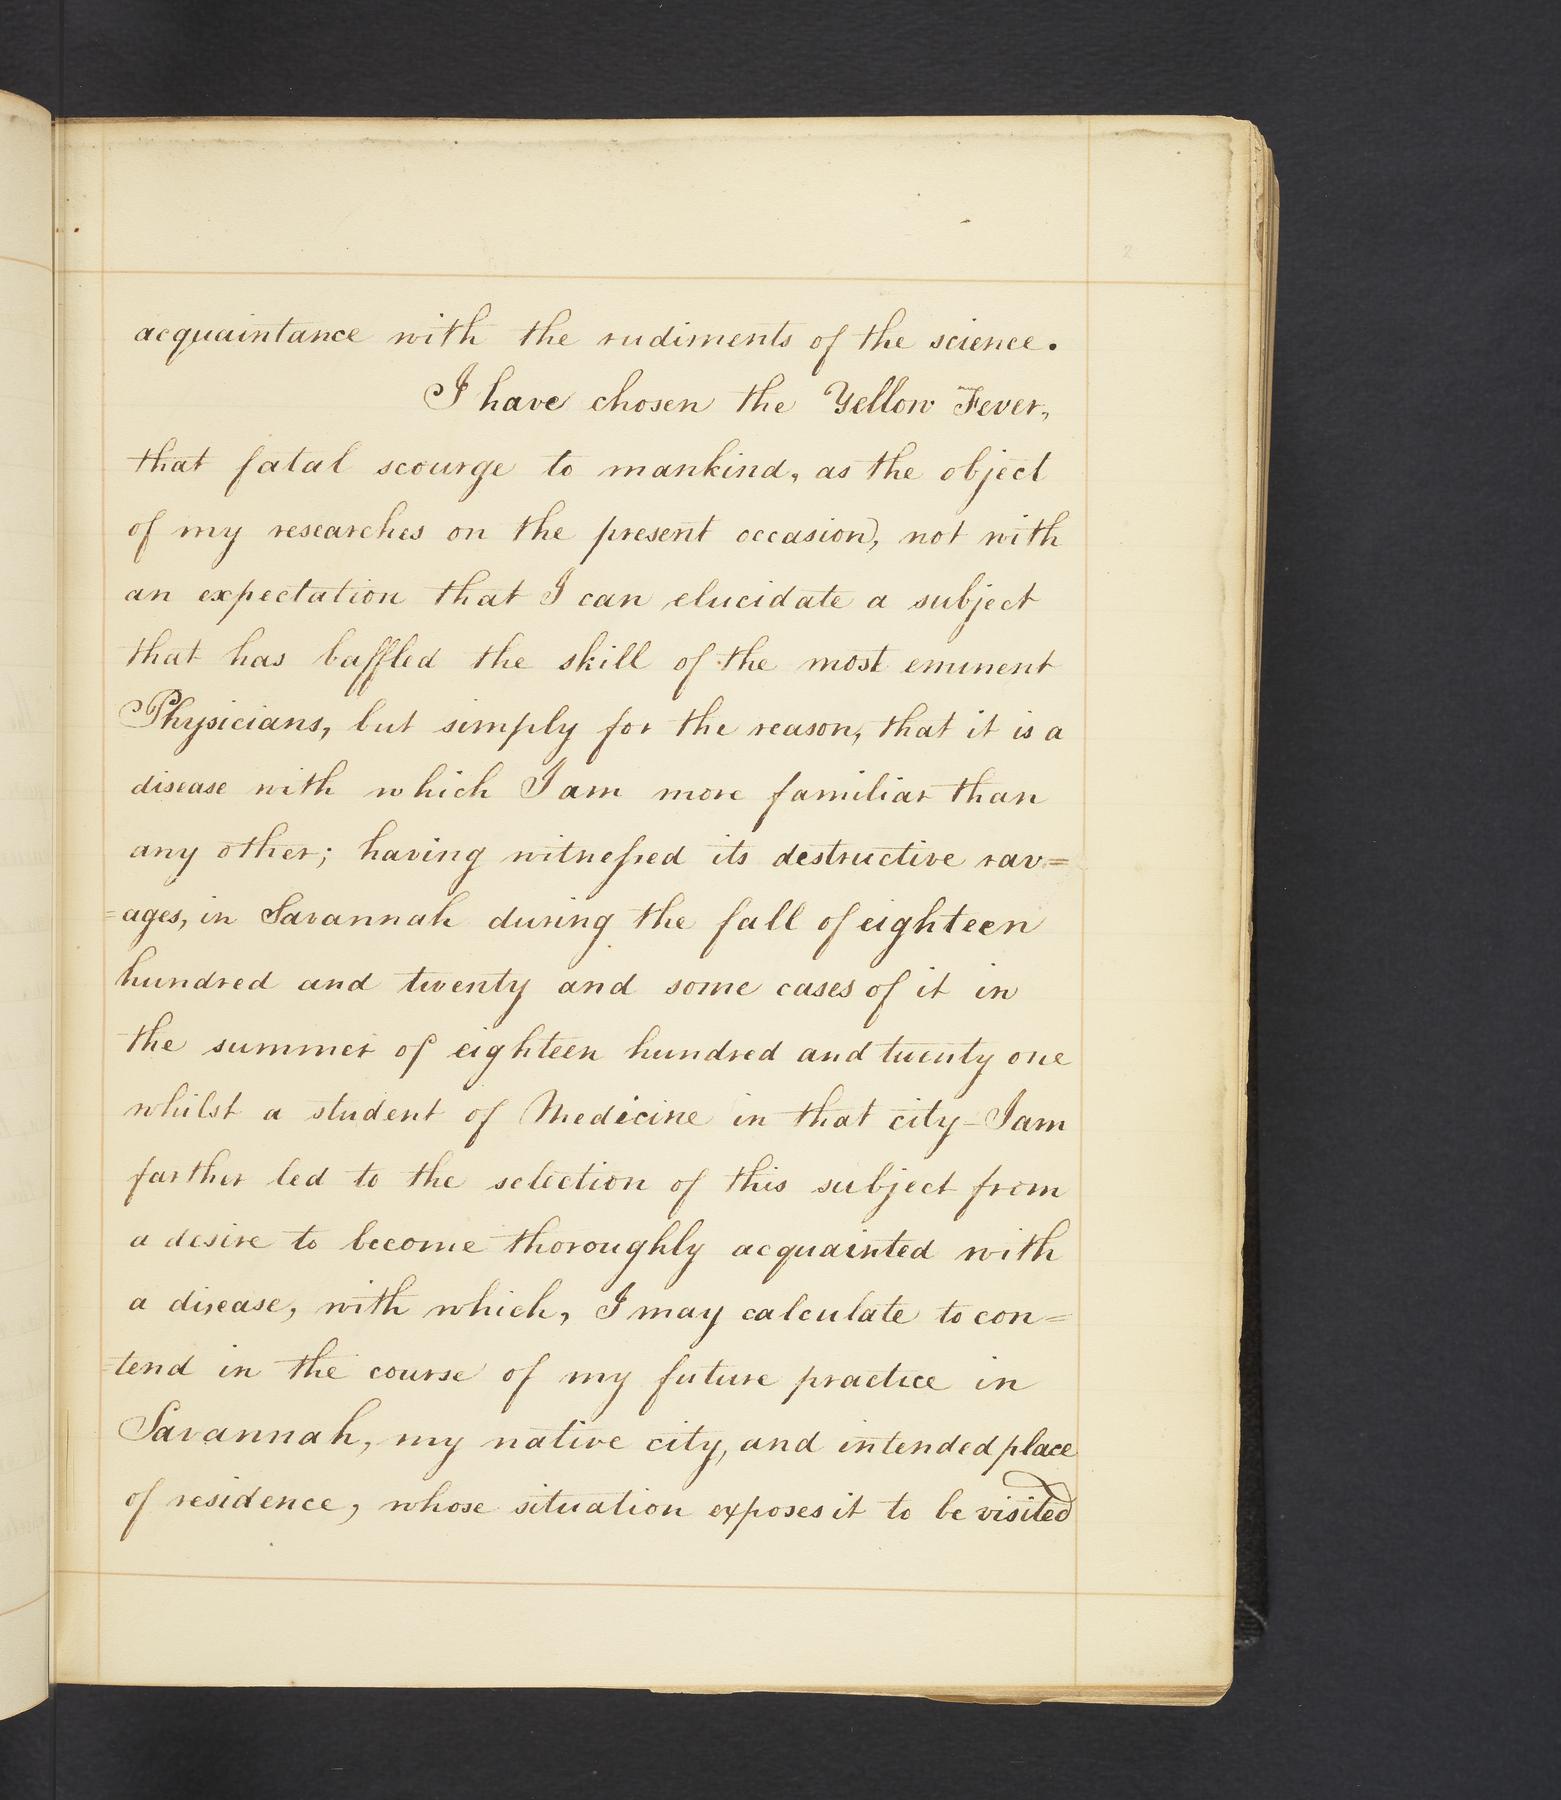 2
acquaintance with the rudiments of the science.
I have chosen the Yellow Fever,
that fatal scourge to mankind, as the object
of my researches on the present occasion, not with
an expectation that I can elucidate a subject
that has baffled the skill of the most eminent
Physicians, but simply for the reason, that it is a
disease with which I am more familiar than
any other; having witneſsed its destructive rav=
=ages, in Savannah during the fall of eighteen
hundred and twenty and some cases of it in
the summer of eighteen hundred and twenty one
whilst a student of Medicine in that city - I am
farther led to the selection of this subject from
a desire to become thoroughly acquainted with
a disease, with which, I may calculate to con=
=tend in the course of my future practice in
Savannah, my native city, and intended place
of residence, whose situation exposes it to be visited